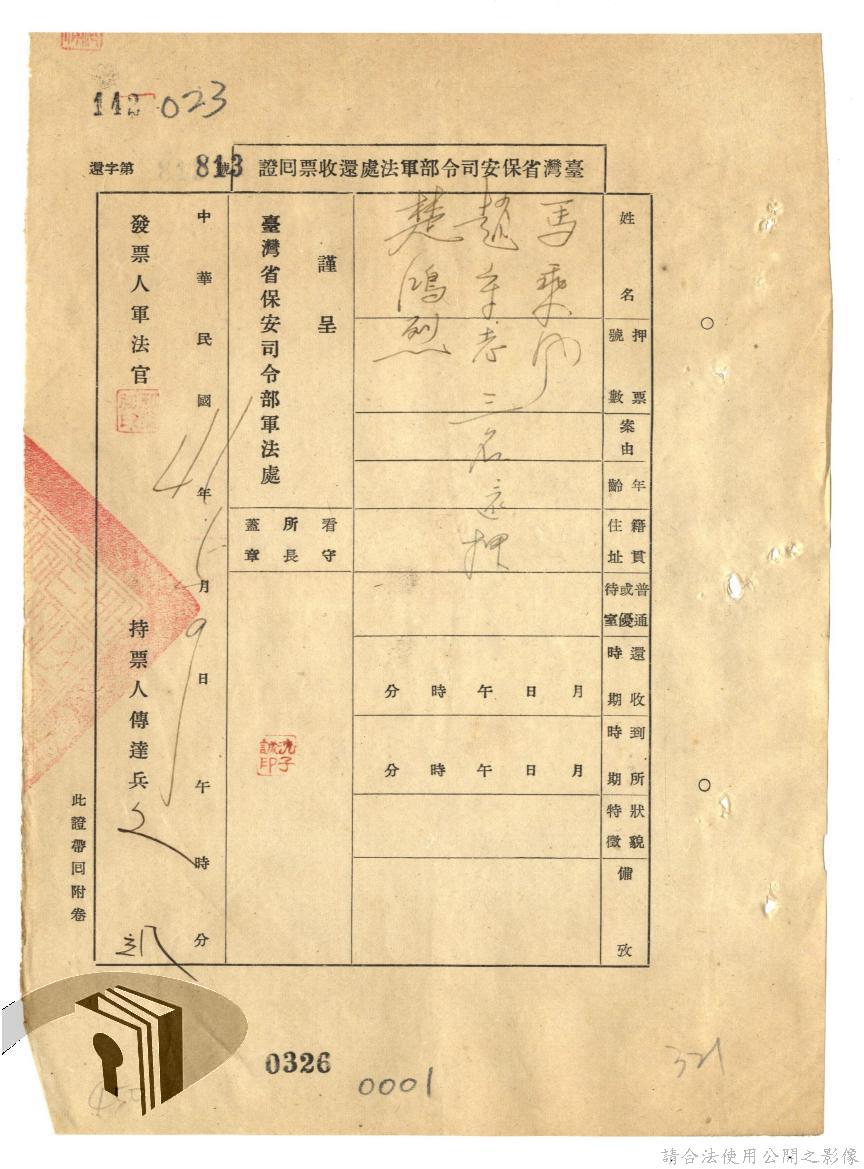 142 023
臺灣省保安司令部軍法處還收票囘證
還字第813號
姓名
馬乘
趙 孝三名還押
楚鴻烈
押票號數
案由
年齡
籍貫住址
普通或優待室
還收時期
月日午時分
到所時期
月日午時分
狀貌特徵
備攷
謹呈
臺灣省保安司令部軍法處
看守所長蓋章
沈子誠印
中華民國41年 月9日午時分
發票人軍法官
持票人傳達兵
此證帶囘附卷
0326
0001
321
請合法使用公開之影像